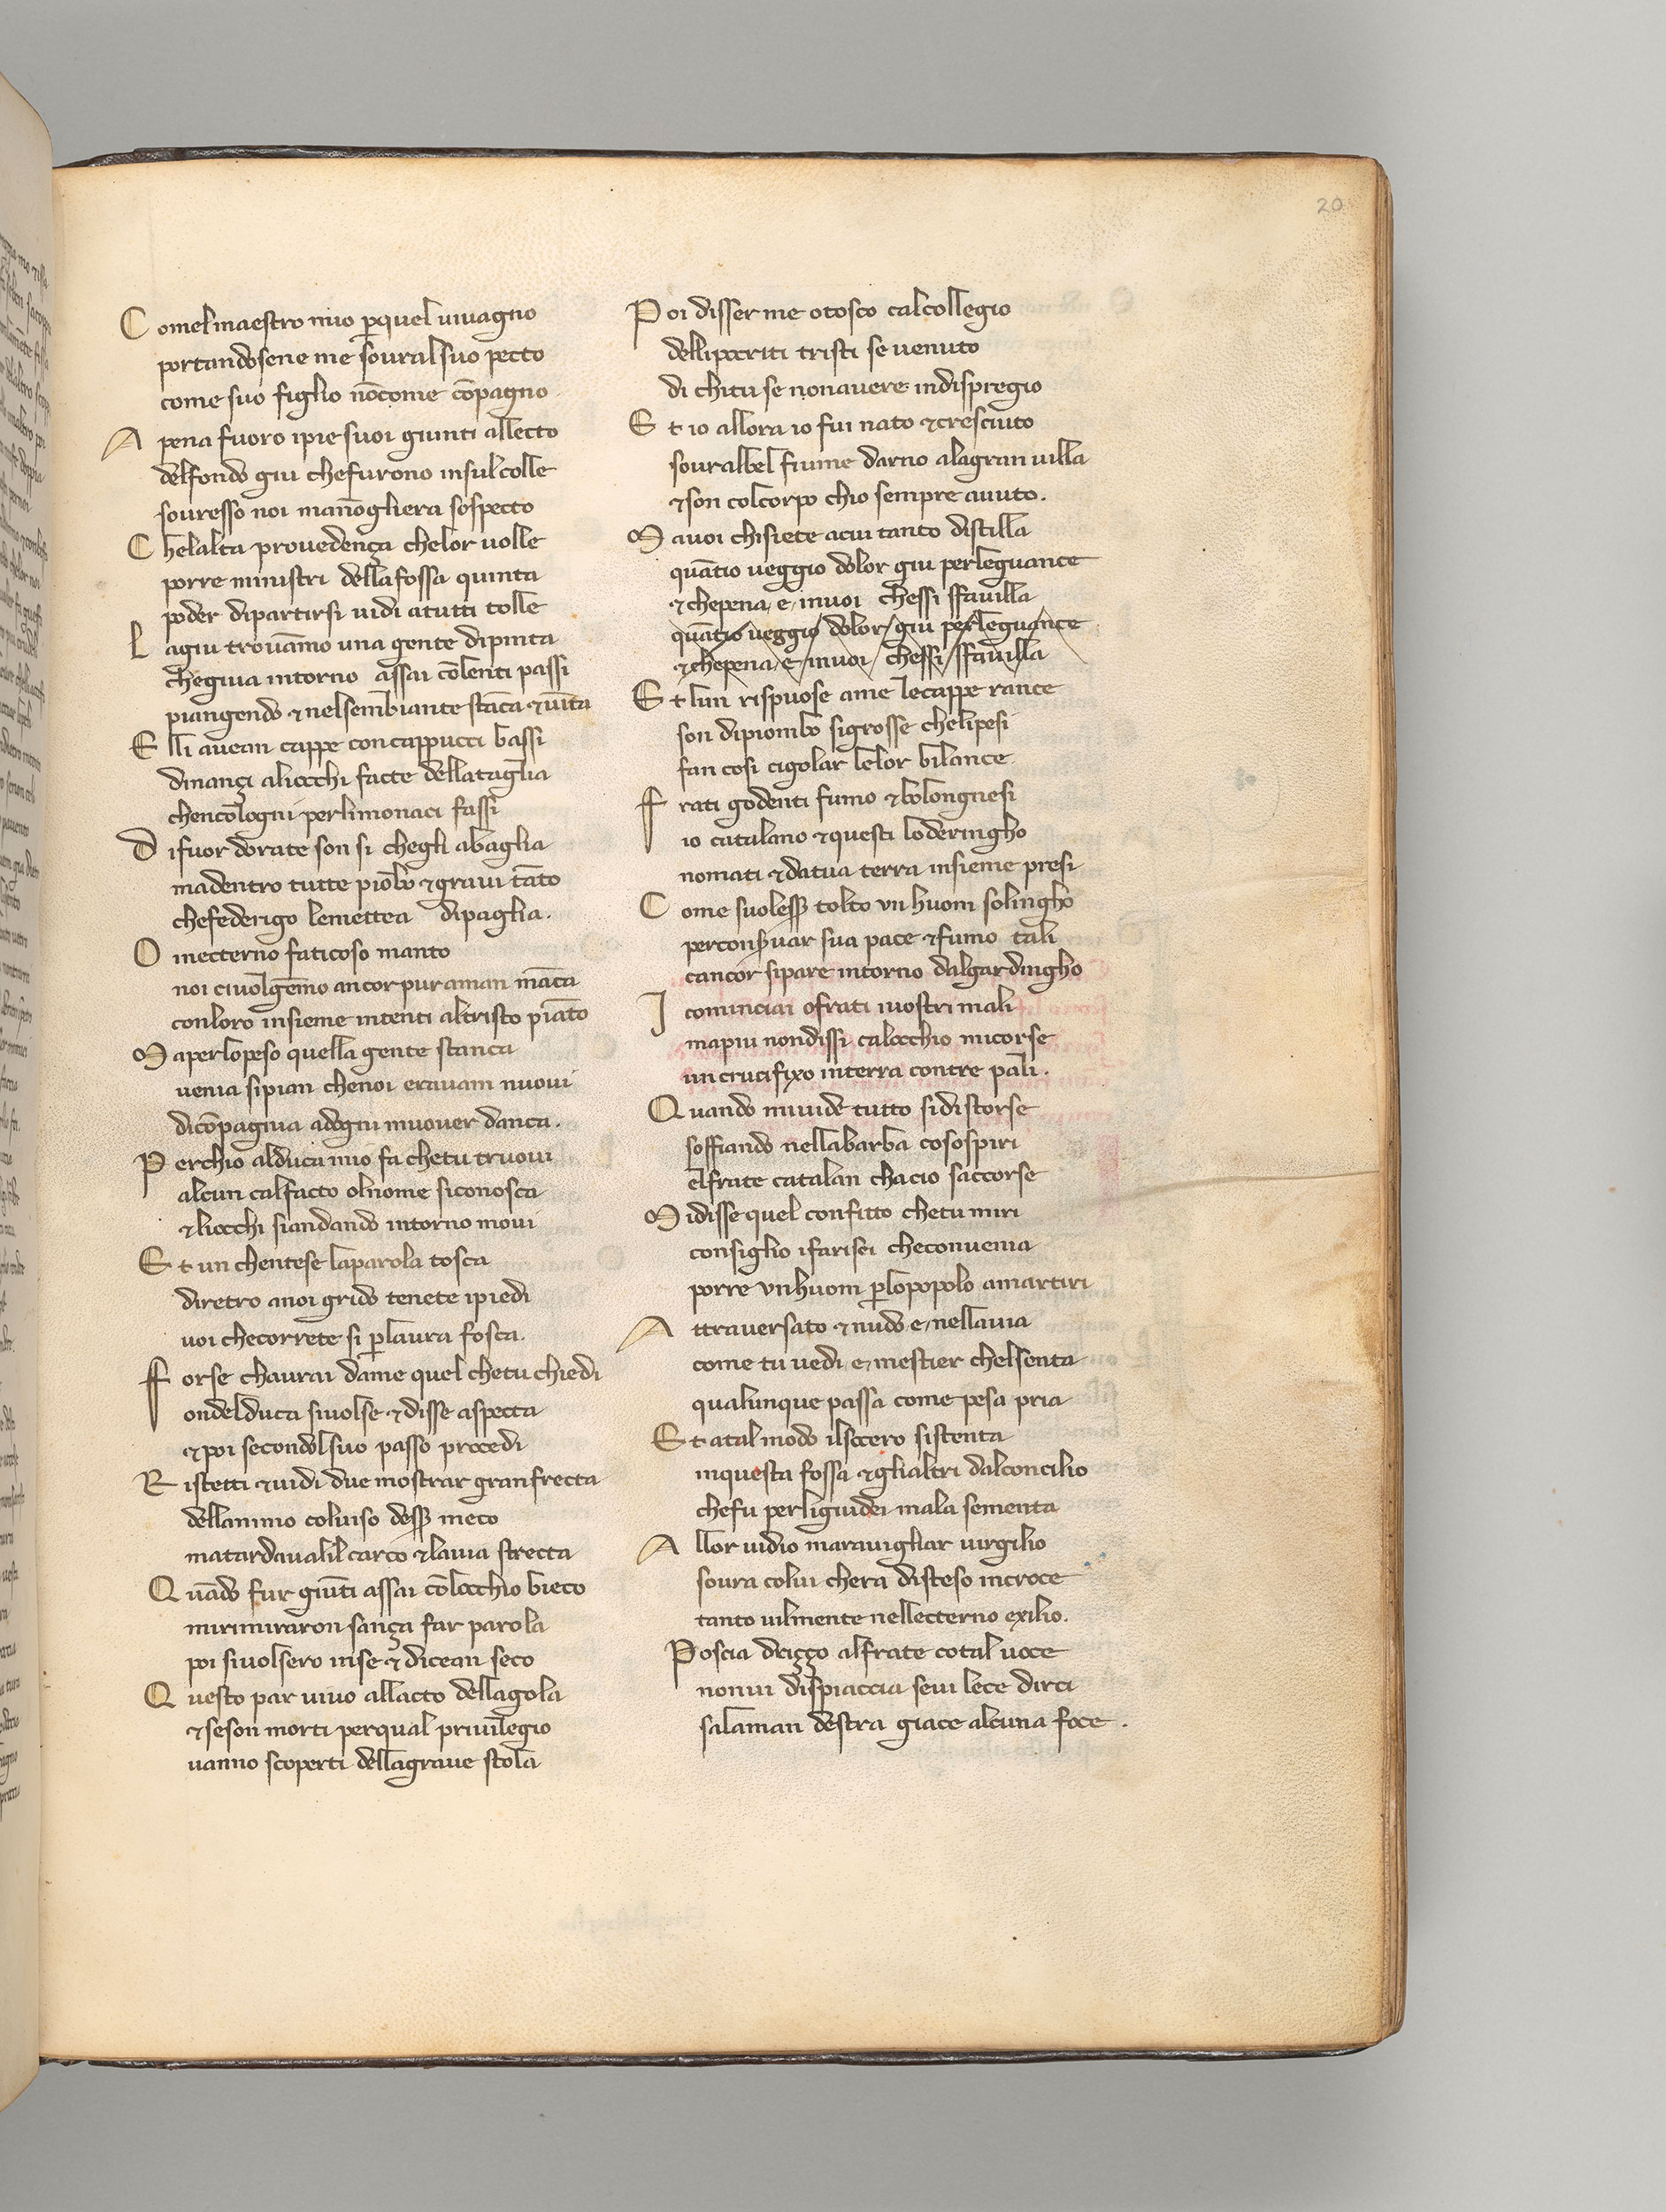 20
Comel maestro mio ꝑquel uiuagno
portandosene me soural suo pecto
come suo figlio nōcome cōpagno
Apena fuoro ipie suoi giunti allecto
delfondo giu chefurono insul colle
souresso noi manōgliera sospecto
Chelalta prouedença chelor uolle
porre ministri dellafossa quinta
poder dipartirsi uidi atutti tolle
Lagiu trouāmo una gente dipinta
chegiua intorno assai cōlenti passi
piangendo ⁊ nelsembiante stāca ⁊ uīta
Elli auean cappe concappucci bassi
dinançi aliocchi facte dellataglia
chencōlogni perlimonaci fassi
Difuor dorate son si chegli abaglia
madentro tutte piōbo ⁊ graui tāto
chefederigo lemettea dipaglia.
O inecterno faticoso manto
noi ciuolgemo ancor pur aman māca
conloro insieme intenti altristo piāto
Maperlopeso quella gente stanca
uenia sipian chenoi erauam nuoui
dicōpagnia adogni muouer danca.
Perchio alduca mio fa chetu truoui
alcun calfacto olnome siconosca
⁊ liocchi siandando intorno moui
Et un chentese laparola tosca
diretro anoi grido tenete ipiedi
uoi checorrete si ꝑlaura fosca.
Forse chaurai dame quel chetu chiedi
ondelduca siuolse ⁊ disse aspecta
⁊ poi secondol suo passo procedi
Ristetti ⁊ uidi due mostrar granfrecta
dellanimo coluiso desser meco
matardaualil carco ⁊ lauia strecta
Quādo fur giūti assai cōlocchio bieco
mirimiraron sança far parola
poi siuolsero inse ⁊ dicean seco
Questo par uiuo allacto dellagola
⁊ seson morti perqual priuilegio
uanno scoperti dellagraue stola
Poi disser me otosco calcollegio
dellipocriti tristi se uenuto
di chitu se nonauere indispregio
Et io allora io fui nato ⁊ cresciuto
souralbel fiume darno alagran uilla
⁊ son colcorpo chio sempre auuto.
Mauoi chisiete acui tanto distilla
quātio ueggio dolor giu perleguance
⁊ chepena e inuoi chessi sfauilla
quātio ueggio dolor giu perleguance
⁊ chepena e inuoi chessi sfauilla
Et lun rispuose ame lecappe rance
son dipiombo sigrosse chelipesi
fan cosi cigolar lelor bilance
Frati godenti fumo ⁊ bolongnesi
io catalano ⁊ questi loderingho
nomati ⁊ datua terra insieme presi
Come suolesser tolto vn huom solingho
perconseruar sua pace ⁊ fumo tali
cancor sipare intorno dalgardingho
Icominciai ofrati iuostri mali
mapiu nondissi calocchio micorse
un crucifixo interra contre pali.
Quando miuide tutto sidistorse
soffiando nellabarba cososspiri
elfrate catalan chacio saccorse
Midisse quel confitto chetu miri
consiglio ifarisei checonuenia
porre vnhuom ꝑlopopolo amartiri
Attrauersato ⁊ nudo e nellauia
come tu uedi e mestier chelsenta
qualunque passa come pesa pria
Et atal modo ilsocero sistenta
inquesta fossa ⁊ glialtri dalconcilio
chefu perligiudei mala sementa
Allor uidio marauigliar uirgilio
soura colui chera disteso incroce
tanto uilmente nellecterno exilio.
Poscia driçço alfrate cotal uoce
nonui dispiaccia seui lece dirci
salaman destra giace alcuna foce.